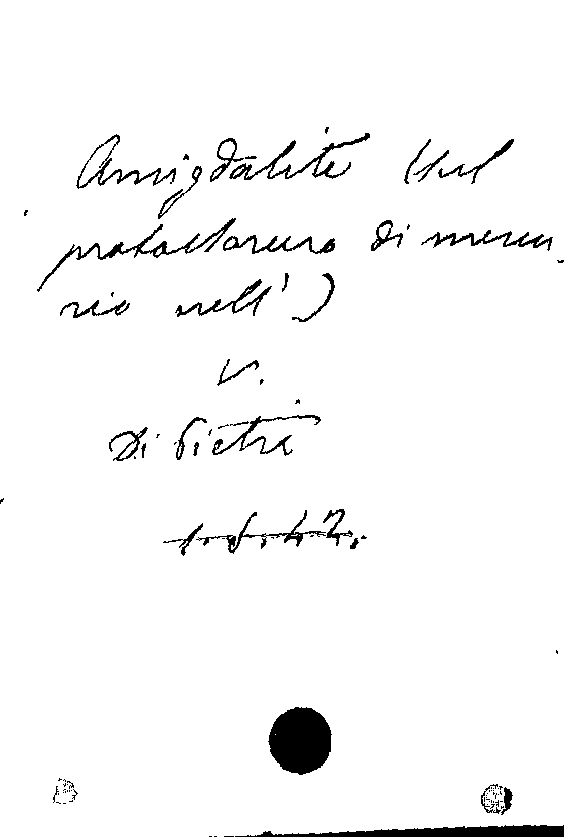 Amigdalite (Sul
protocloruro di mercu-
rio nell')
V.
Di Pietri
1.6.42.